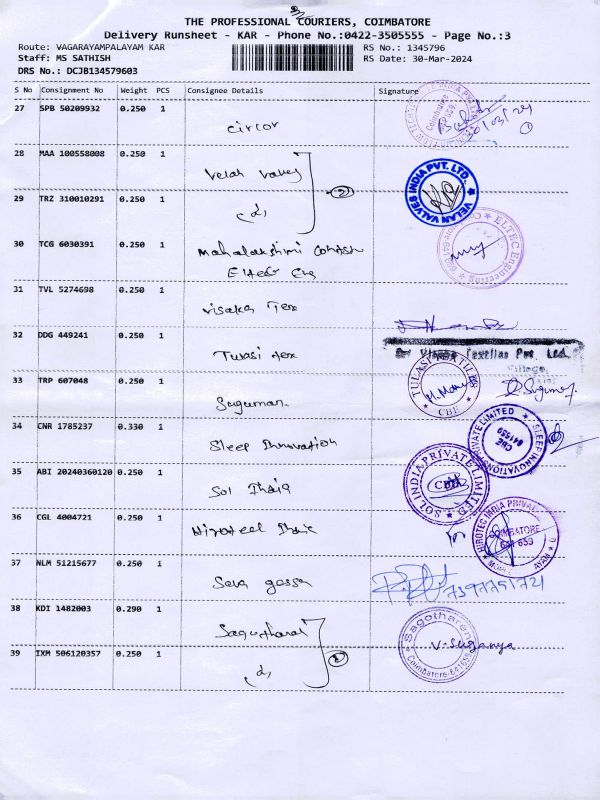 THE PROFESSIONAL COURIERS, COIMBATORE
Delivery Runsheet - KAR - Phone No.:0422-3505555 - Page No.:3
Route: VAGARAYAMPALAYAM KAR RS No.: 1345796
Staff: MS SATHISH RS Date: 30-Mar-2024
DRS No.: DCJB134579603
S No Consignment No Weight PCS Consignee Details Signature
27 SPB 50209932 0.250 1
circor
28 MAA 100558008 0.250 1
Velan Valves
VELAN VALVES INDIA PVT. LTD.
29 TRZ 310010291 0.250 1
(d)
2
30 TCG 6030391 0.250 1
Mahalakshmi
Eltec Eng
ELTEC Engineering
31 TVL 5274698 0.250 1
Visaka Tex
32 DDG 449241 0.250 1
Tulasi tex
Textiles Pvt. Ltd.
TULASI TEXTILES
CBE
33 TRP 607048 0.250 1
Suguman
34 CNR 1785237 0.330 1
Sleep Innovation
SLEEP INNOVATION PRIVATE LIMITED
CBE
641659
35 ABI 20240360120 0.250 1
Sol India
SOL INDIA PRIVATE LIMITED
36 CGL 4004721 0.250 1
HIROTEC INDIA PRIVATE
COIMBATORE
641 659
37 NLM 51215677 0.250 1
38 KDI 1482003 0.290 1
Sagotharan
V. Suganya
Coimbatore-641659
39 IXM 506120357 0.250 1
(d)